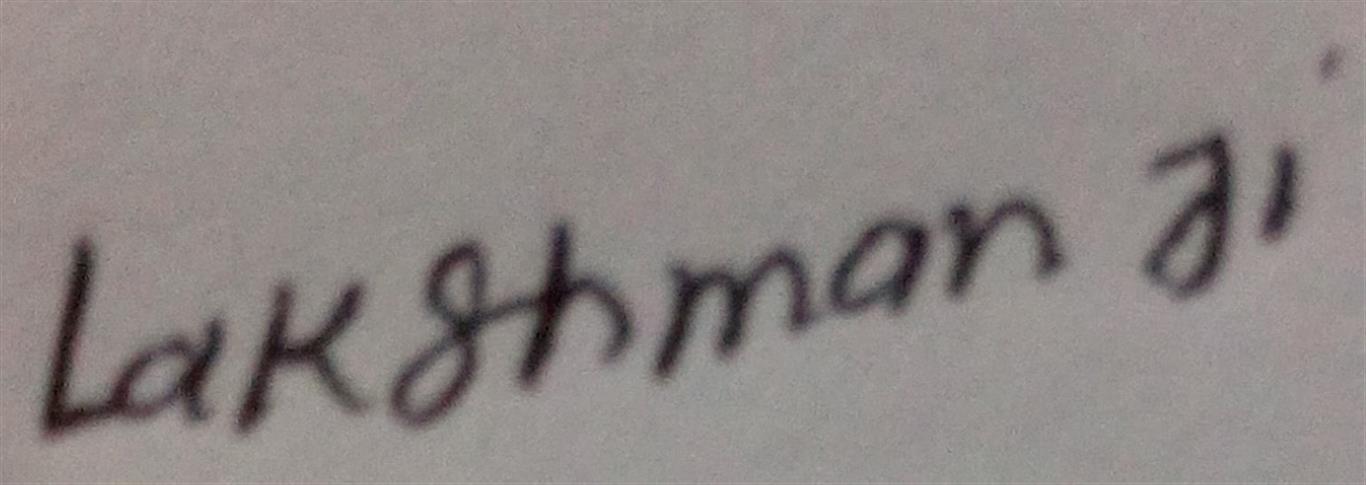 Lakshman Ji